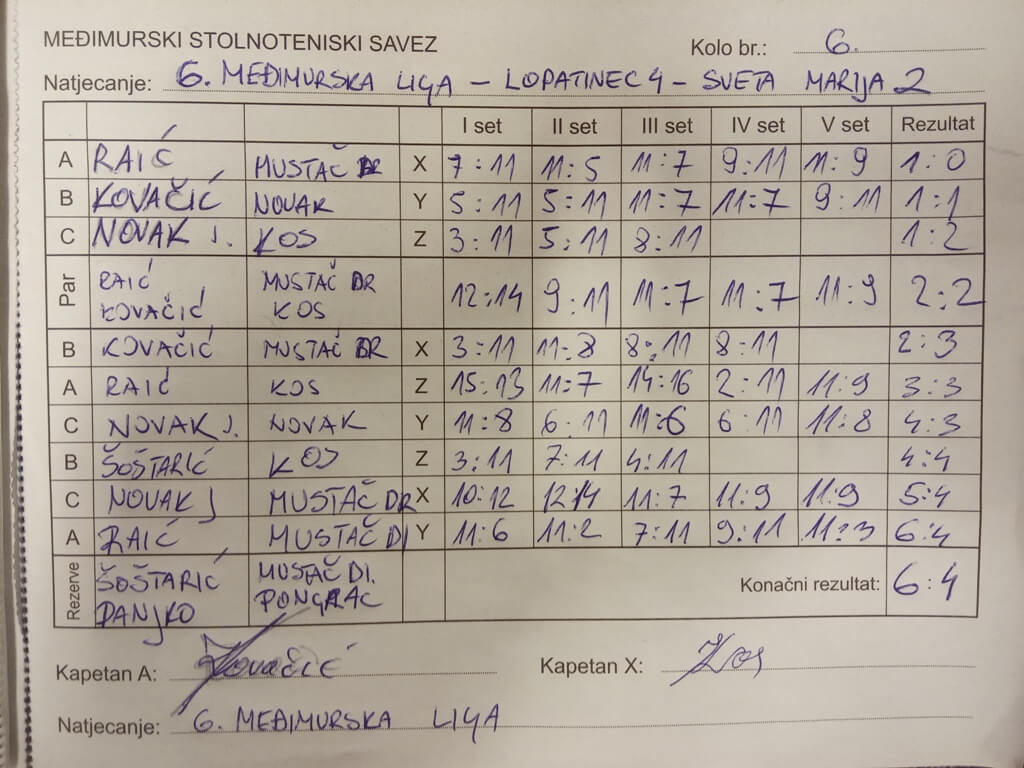 MEĐIMURSKI STOLNOTENISKI SAVEZ Kolo br.: 6.
Natjecanje: 6. MEĐIMURSKA LIGA - LOPATINEC 4 - SVETA MARIJA 2
I set II set III set IV set V set Rezultat
A RAIĆ MUSTAČ DR X 7:11 11:5 11:7 9:11 11:9 1:0
B KOVAČIĆ NOVAK Y 5:11 5:11 11:7 11:7 9:11 1:1
C NOVAK J. KOS Z 3:11 5:11 8:11 1:2
Par RAIĆ KOVAČIĆ MUSTAČ DR KOS 12:14 9:11 11:7 11:7 11:9 2:2
B KOVAČIĆ MUSTAČ DR X 3:11 11:8 8:11 8:11 2:3
A RAIĆ KOS Z 15:13 11:7 14:16 2:11 11:9 3:3
C NOVAK J. NOVAK Y 11:8 6:11 11:6 6:11 11:8 4:3
B ŠOŠTARIĆ KOS Z 3:11 7:11 4:11 4:4
C NOVAK J MUSTAČ DR X 10:12 12:14 11:7 11:9 11:9 5:4
A RAIĆ MUSTAČ DI Y 11:6 11:2 7:11 9:11 11:3 6:4
Rezerve ŠOŠTARIĆ DANJKO MUSTAČ DI. PONGRAC Konačni rezultat: 6:4
Kapetan A: Kovačić Kapetan X: Kos
Natjecanje: 6. MEĐIMURSKA LIGA